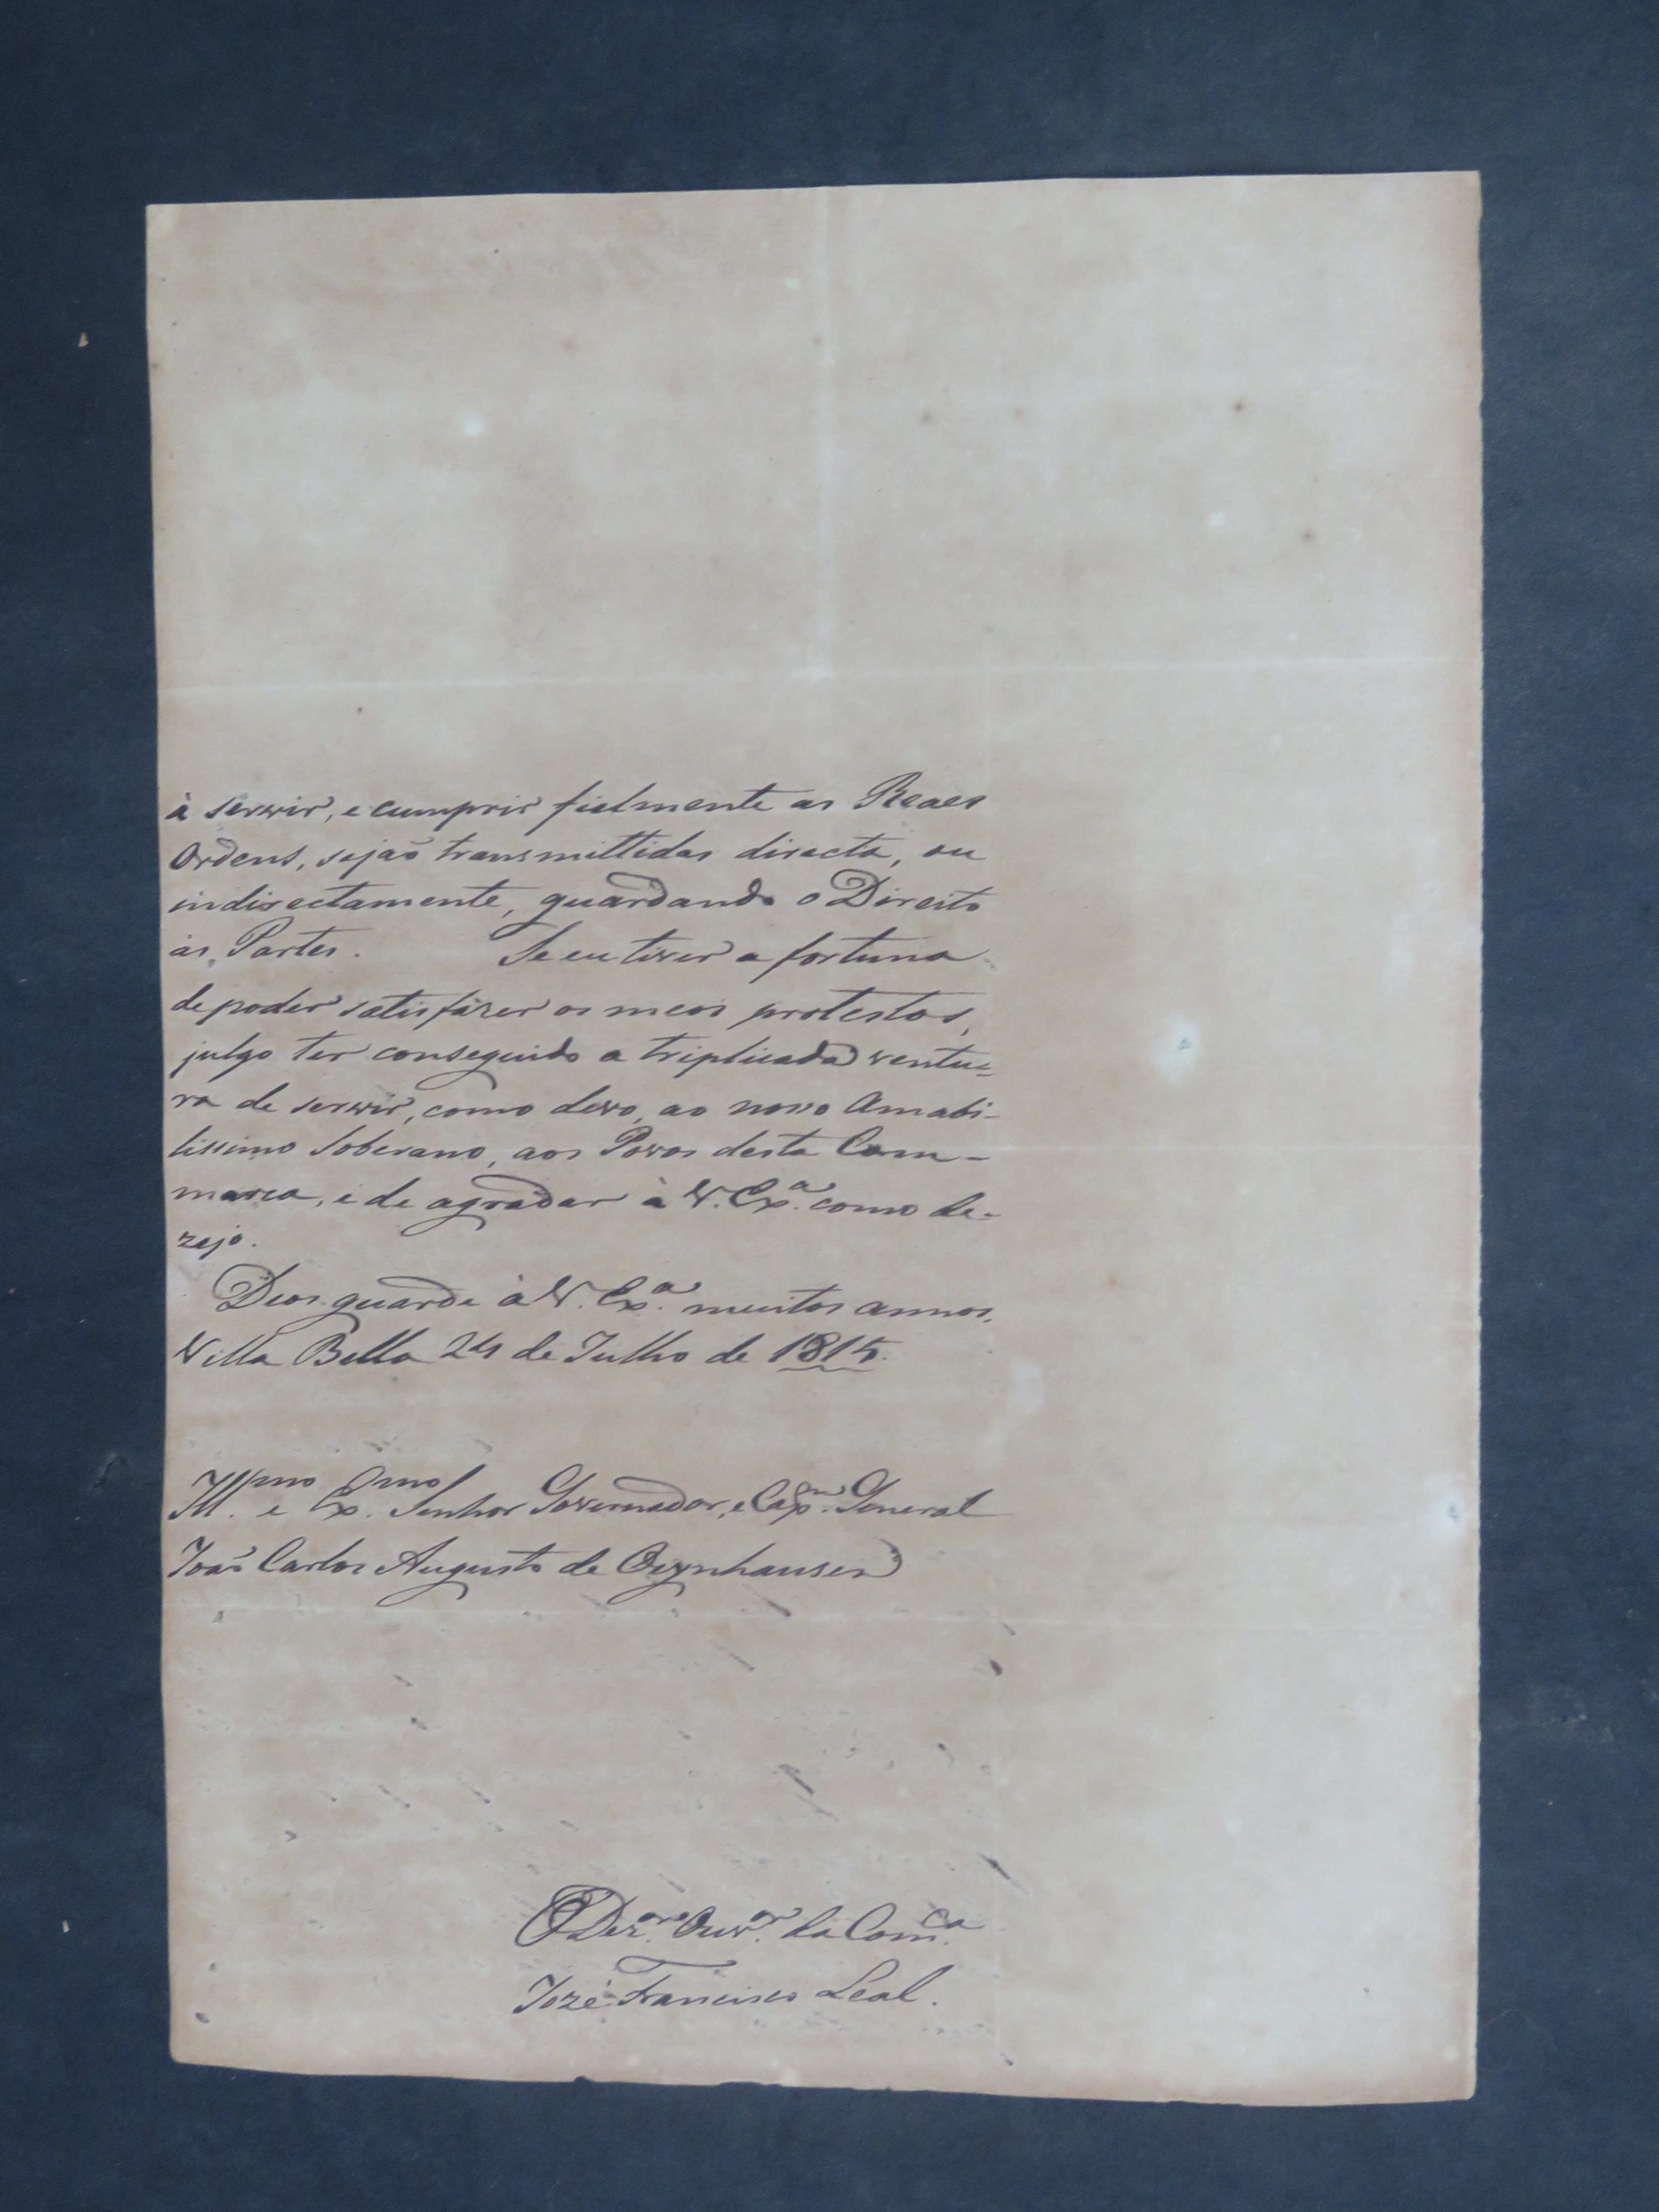 à servir, e cumprir fielmente as Reaes
Ordens, sejaõ transmittidas directa, ou
indirectamente, guardando o Direito
ás Partes. Se eu tiver a fortuna
de poder satisfazer os meos protestos,
julgo ter conseguido a triplicada ventu=
ra de servir, como devo, ao nosso Amabi-
lissimo Soberano, aos Povos desta Com-
marca, e de agradar à V. Ex.ª como de-
zejo.
Deos guarde à V. Ex.ª muitos annos.
Villa Bella 24 de Julho de 1815.
Ill.mo e Ex.mo Senhor Governador, e Cap.m General
Joaõ Carlos Augusto de Oeynhausen
O Dez.or Ouv.or da Com.ca
Jozé Francisco Leal.